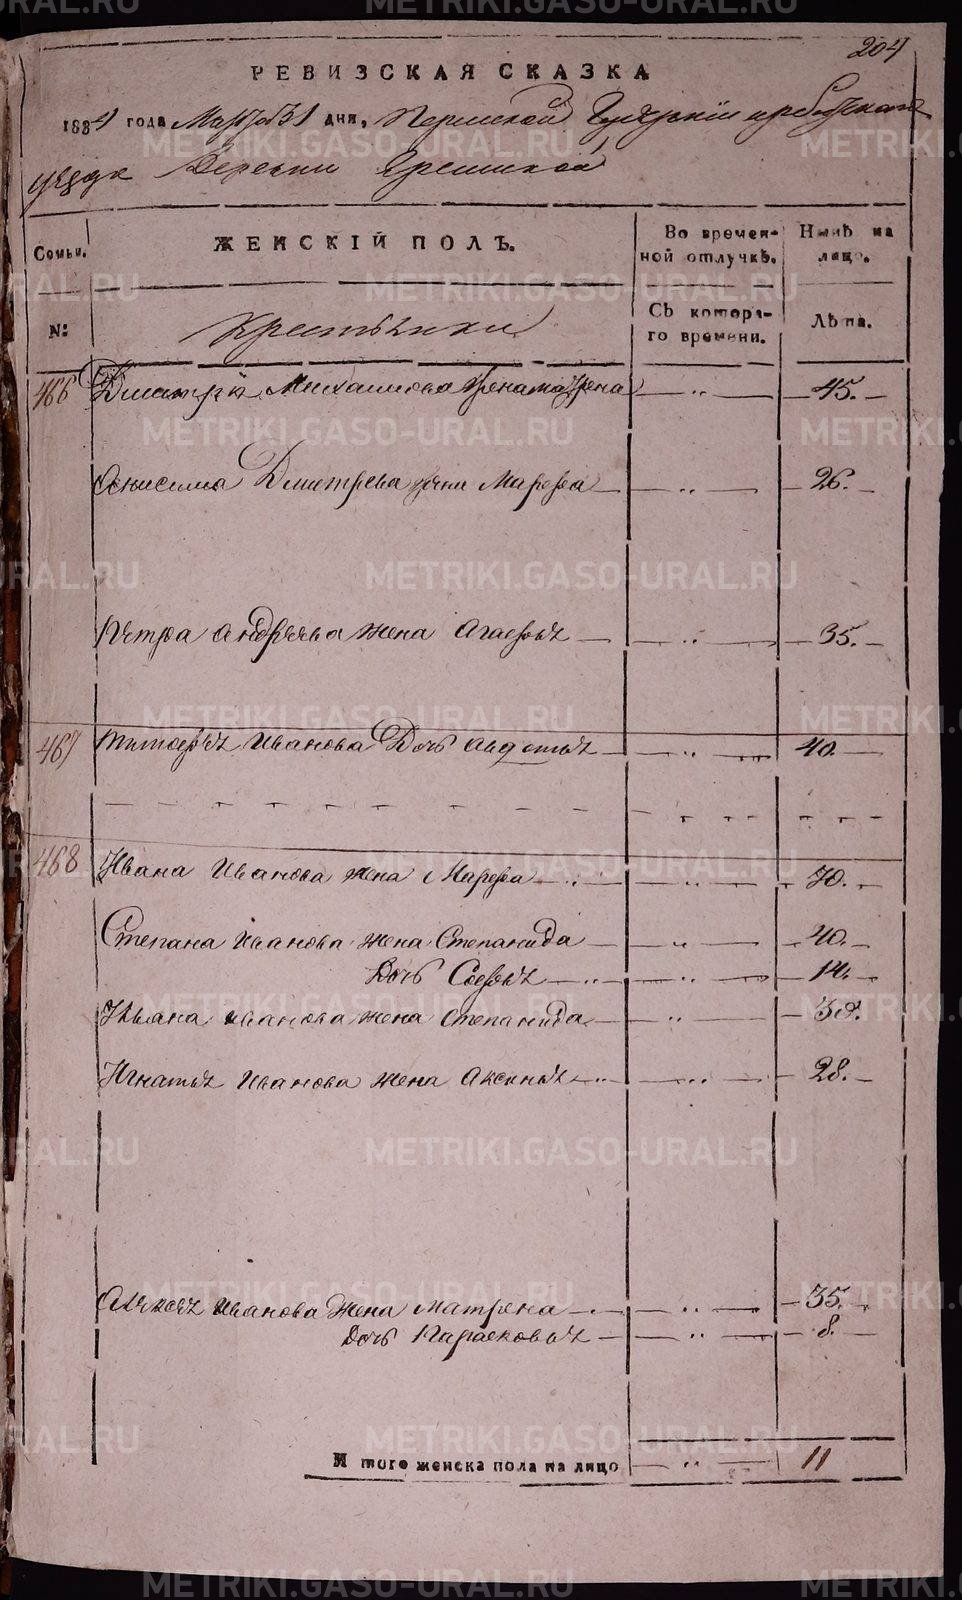 204
РЕВИЗСКАЯ СКАЗКА
1834 года Марта 31 дни, Пермской Губернии Ирбитскаго
уезда Деревни
Семьи. ЖЕНСКІЙ ПОЛЪ. Во времен-ной отлучкѣ. Нынѣ на лицо.
№: Крестьянки Съ котора-го времени. Лѣта.
466 Дмитрія Михаилова жена 45.
Анисима Дмитрева жена Марфа 26.
Петра Андреева жена Агафья 35.
467 Тимофея Иванова Дочь Авдотья 40.
468 Ивана Иванова жена Марфа 70.
Степана Иванова жена Степанида 40.
Дочь Софья 14.
Ивана Иванова жена Степанида
Игнатья Иванова жена Аксинья 28.
Алексея Иванова жена Матрена 35.
Дочь Парасковья 8.
И того женска пола на лицо 11
METRIKI.GASO-URAL.RU